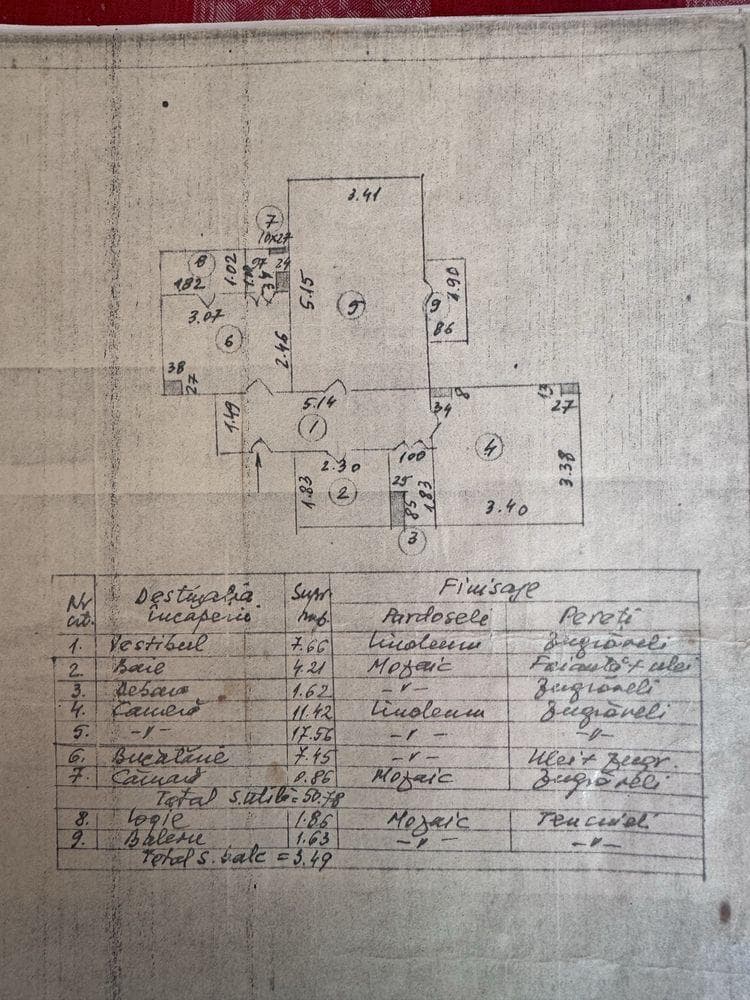 3.41
7
10x27
8
1.02
97
24
1.82
5.15
5
1.90
9
86
3.07
6
2.46
38
27
34
8
13
27
5.14
1.49
1
2.30
100
4
3.38
1.83
2
25
85
1.83
3.40
3
Nr crt. Destinația încăperii Supr. mp. Finisaje
Pardoseli Pereți
1. Vestibul 7.66 Linoleum Zugrăveli
2 Baie 4.21 Mozaic Faianță+ulei
3. Debara 1.62 -"- Zugrăveli
4. Cameră 11.42 Linoleum Zugrăveli
5. -"- 17.56 -"- -"-
6. Bucătărie 7.45 -"- Ulei+zugr.
7. Cămară 0.86 Mozaic Zugrăveli
Total s.utilă=50.78
8. Logie 1.86 Mozaic Tencuieli
9. Balcon 1.63 -"- -"-
Total s.balc = 3.49